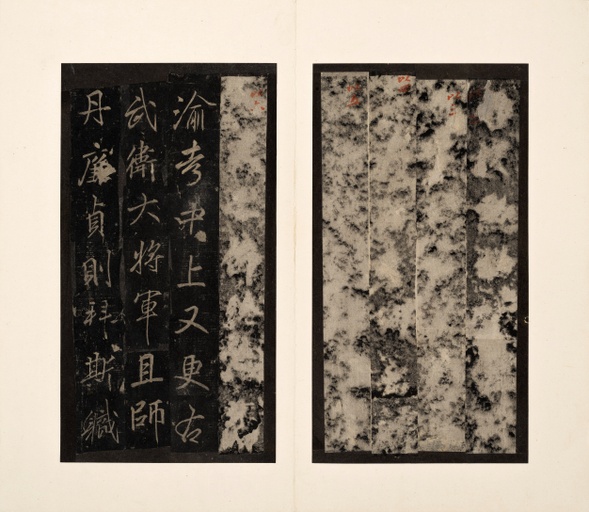 渝考中上又更右
武衛大將軍且師
丹廉貞則拜斯職